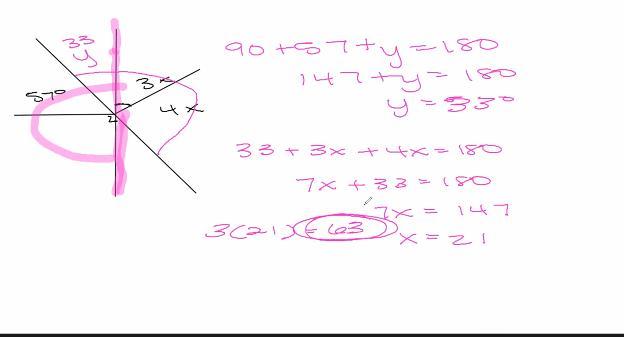 33
y
57°
3x
4x
2
90 + 57 + y = 180
147 + y = 180
y = 33°
33 + 3x + 4x = 180
7x + 33 = 180
7x = 147
3(21) = 63
x = 21